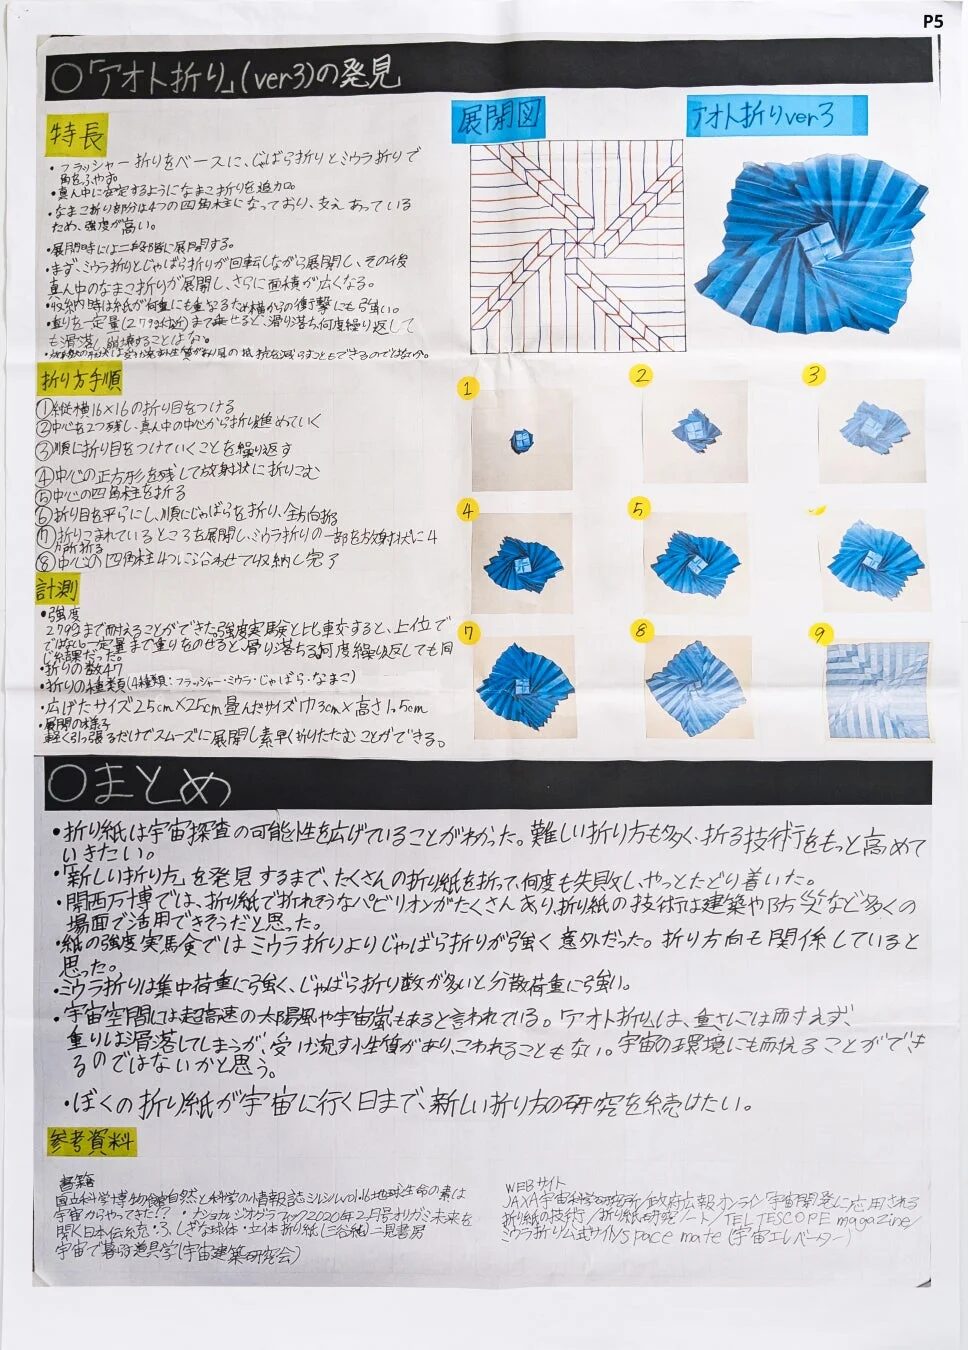 P5
○「アオト折り」(ver3)の発見
特長
・フラッシャー折りをベースに、じゃばら折りとミウラ折りで
角をふやす。
・真ん中に安定するようになまこ折りを追加。
・なまこ折り部分は4つの四角柱になっており、支えあっている
ため、強度が高い。
・展開時には二段階に展開する。
・まず、ミウラ折りとじゃばら折りが回転しながら展開し、その後
真ん中のなまこ折りが展開し、さらに面積が広くなる。
・収納時は紙が何重にも重なるため横からの衝撃にも強い。
・重りを一定量(279g付近)まで乗せると、滑り落ち何度繰り返して
も滑落し崩壊することはない。
展開図
アオト折りver3
折り方手順
①縦横16×16の折り目をつける
②中心を2つ残し、真ん中の中心から折り進めていく
③順に折り目をつけていくことを繰り返す
④中心の正方形を残して放射状に折りこむ
⑤中心の四角柱を折る
⑥折り目を平らにし、順にじゃばらを折り、全方向折る
⑦折りこまれているところを展開し、ミウラ折りの一部を放射状に4
カ所折る
⑧中心の四角柱4つに沿わせて収納し完了
1
2
3
4
5
7
8
9
計測
・強度
279gまで耐えることができた。強度実験と比較すると、上位で
はないが一定量まで重りをのせると、滑り落ちる。何度繰り返しても同
じ結果だった。
・折りの数47
・折りの種類(4種類:フラッシャー・ミウラ・じゃばら・なまこ)
・広げたサイズ25cm×25cm畳んだサイズ巾3cm×高さ1,5cm
・展開の様子
軽く引っ張るだけでスムーズに展開し素早く折りたたむことができる。
○まとめ
・折り紙は宇宙探査の可能性を広げていることがわかった。難しい折り方も多く、折る技術をもっと高めて
いきたい。
・「新しい折り方」を発見するまで、たくさんの折り紙を折って、何度も失敗し、やっとたどり着いた。
・関西万博では、折り紙で折れそうなパビリオンがたくさんあり、折り紙の技術は建築や防災など多くの
場面で活用できそうだと思った。
・紙の強度実験ではミウラ折りよりじゃばら折りが強く意外だった。折り方向も関係していると
思った。
・ミウラ折りは集中荷重に強く、じゃばら折り数が多いと分散荷重に強い。
・宇宙空間には超高速の太陽風や宇宙嵐もあると言われている。「アオト折り」は、重さには耐えず、
重りは滑落してしまうが、受け流す性質があり、こわれることもない。宇宙の環境にも耐えることができ
るのではないかと思う。
・ぼくの折り紙が宇宙に行く日まで、新しい折り方の研究を続けたい。
参考資料
書籍
国立科学博物館自然と科学の情報誌ミルシルvol.16地球生命の素は
宇宙からやってきた!?・ナショナルジオグラフィック2020年2月号オリガミ未来を
開く日本伝統・ふしぎな球体・立体折り紙(三谷純)二見書房
宇宙で暮らす道具学(宇宙建築研究会)
WEBサイト
JAXA宇宙科学研究所/政府広報オンライン「宇宙開発に応用される
折り紙の技術」/折り紙研究ノート/TELTESCOPE magazine/
ミウラ折り公式サイト/space mate(宇宙エレベーター)